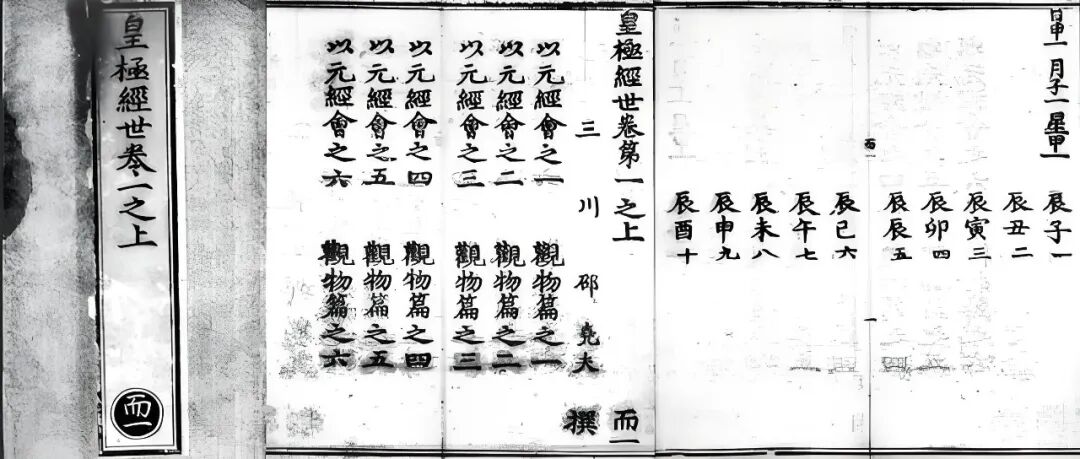 皇極經世卷一之上
而一
皇極經世卷第一之上 而一
三川 邵尭夫 撰
以元經會之一 觀物篇之一
以元經會之二 觀物篇之二
以元經會之三 觀物篇之三
以元經會之四 觀物篇之四
以元經會之五 觀物篇之五
以元經會之六 觀物篇之六
日甲一 月子一 星甲一
辰子一
辰丑二
辰寅三
辰卯四
辰辰五
一
辰巳六
辰午七
辰未八
辰申九
辰酉十